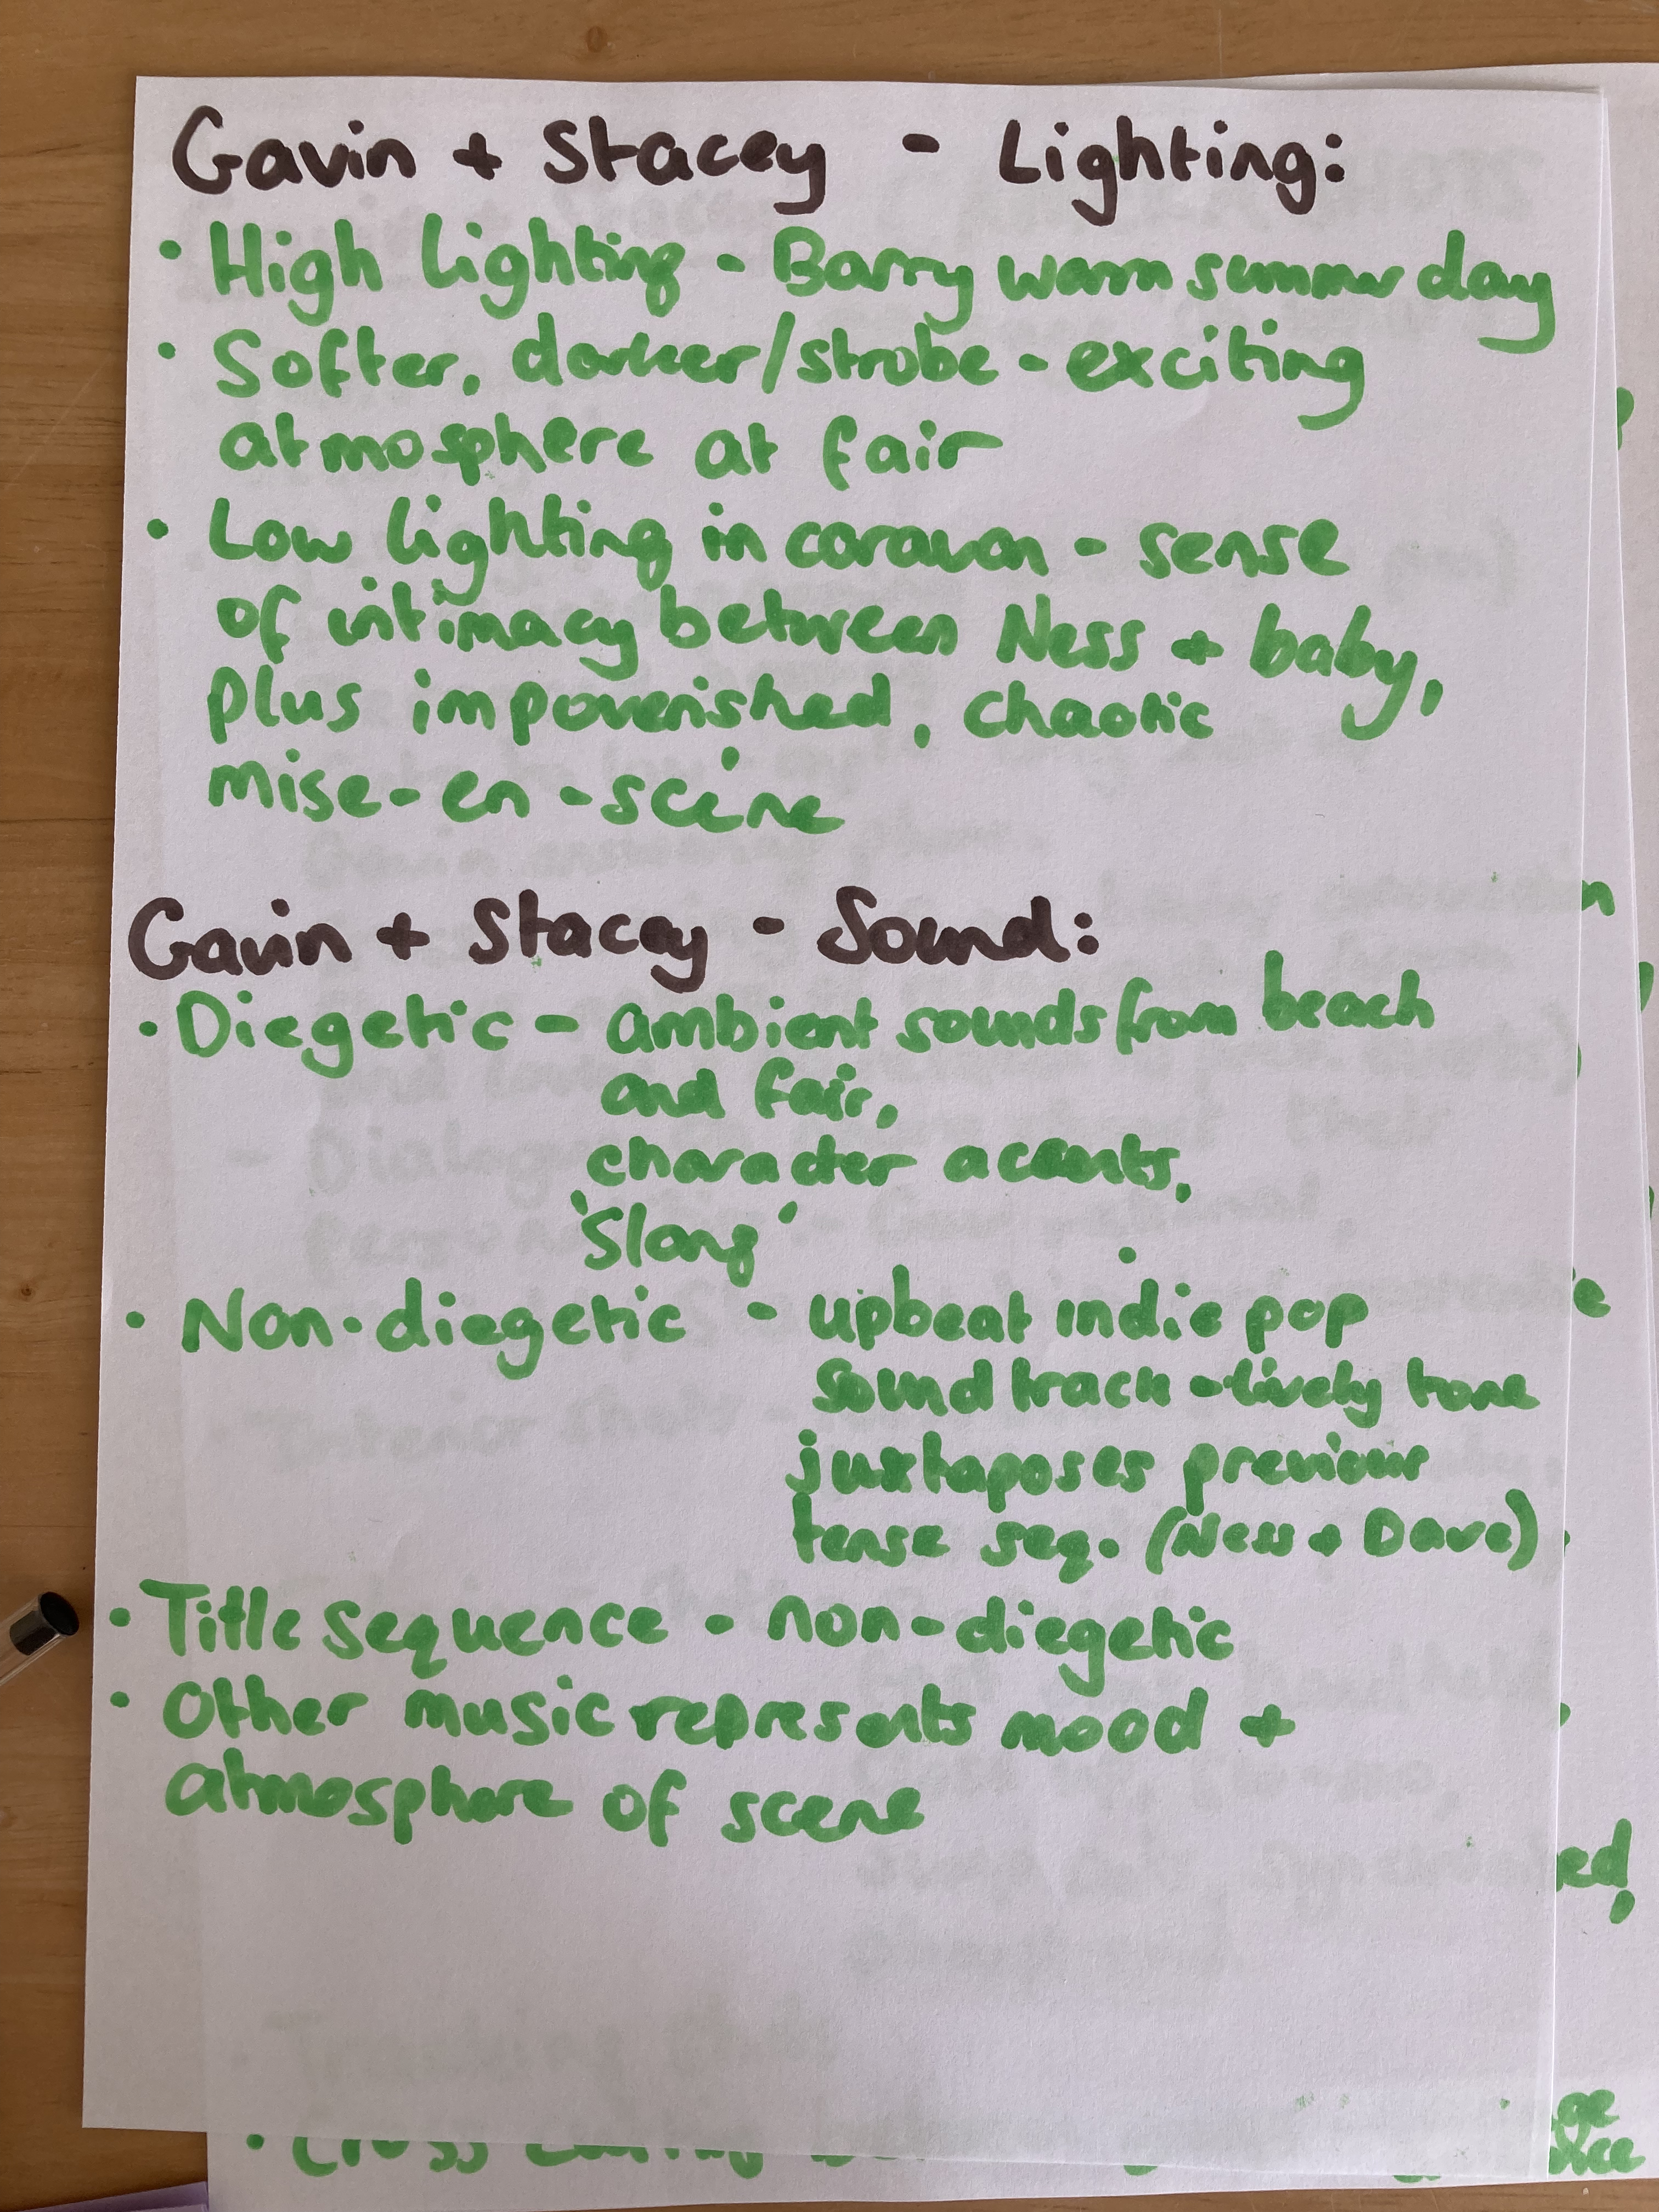 Gavin + Stacey - Lighting:
• High Lighting - Barry warm summer day
• Softer, darker/strobe - exciting
atmosphere at fair
• Low lighting in caravan - sense
of intimacy between Ness + baby,
plus impoverished, chaotic
mise-en-scéne
Gavin + Stacey - Sound:
• Diegetic - ambient sounds from beach
and fair,
character accents,
'Slang'
• Non-diegetic - upbeat indie pop
soundtrack - lively tone
juxtaposes previous
tense seq. (Ness + Dave)
• Title Sequence - non-diegetic
• Other music represents mood +
atmosphere of scene
ed,
• Cross